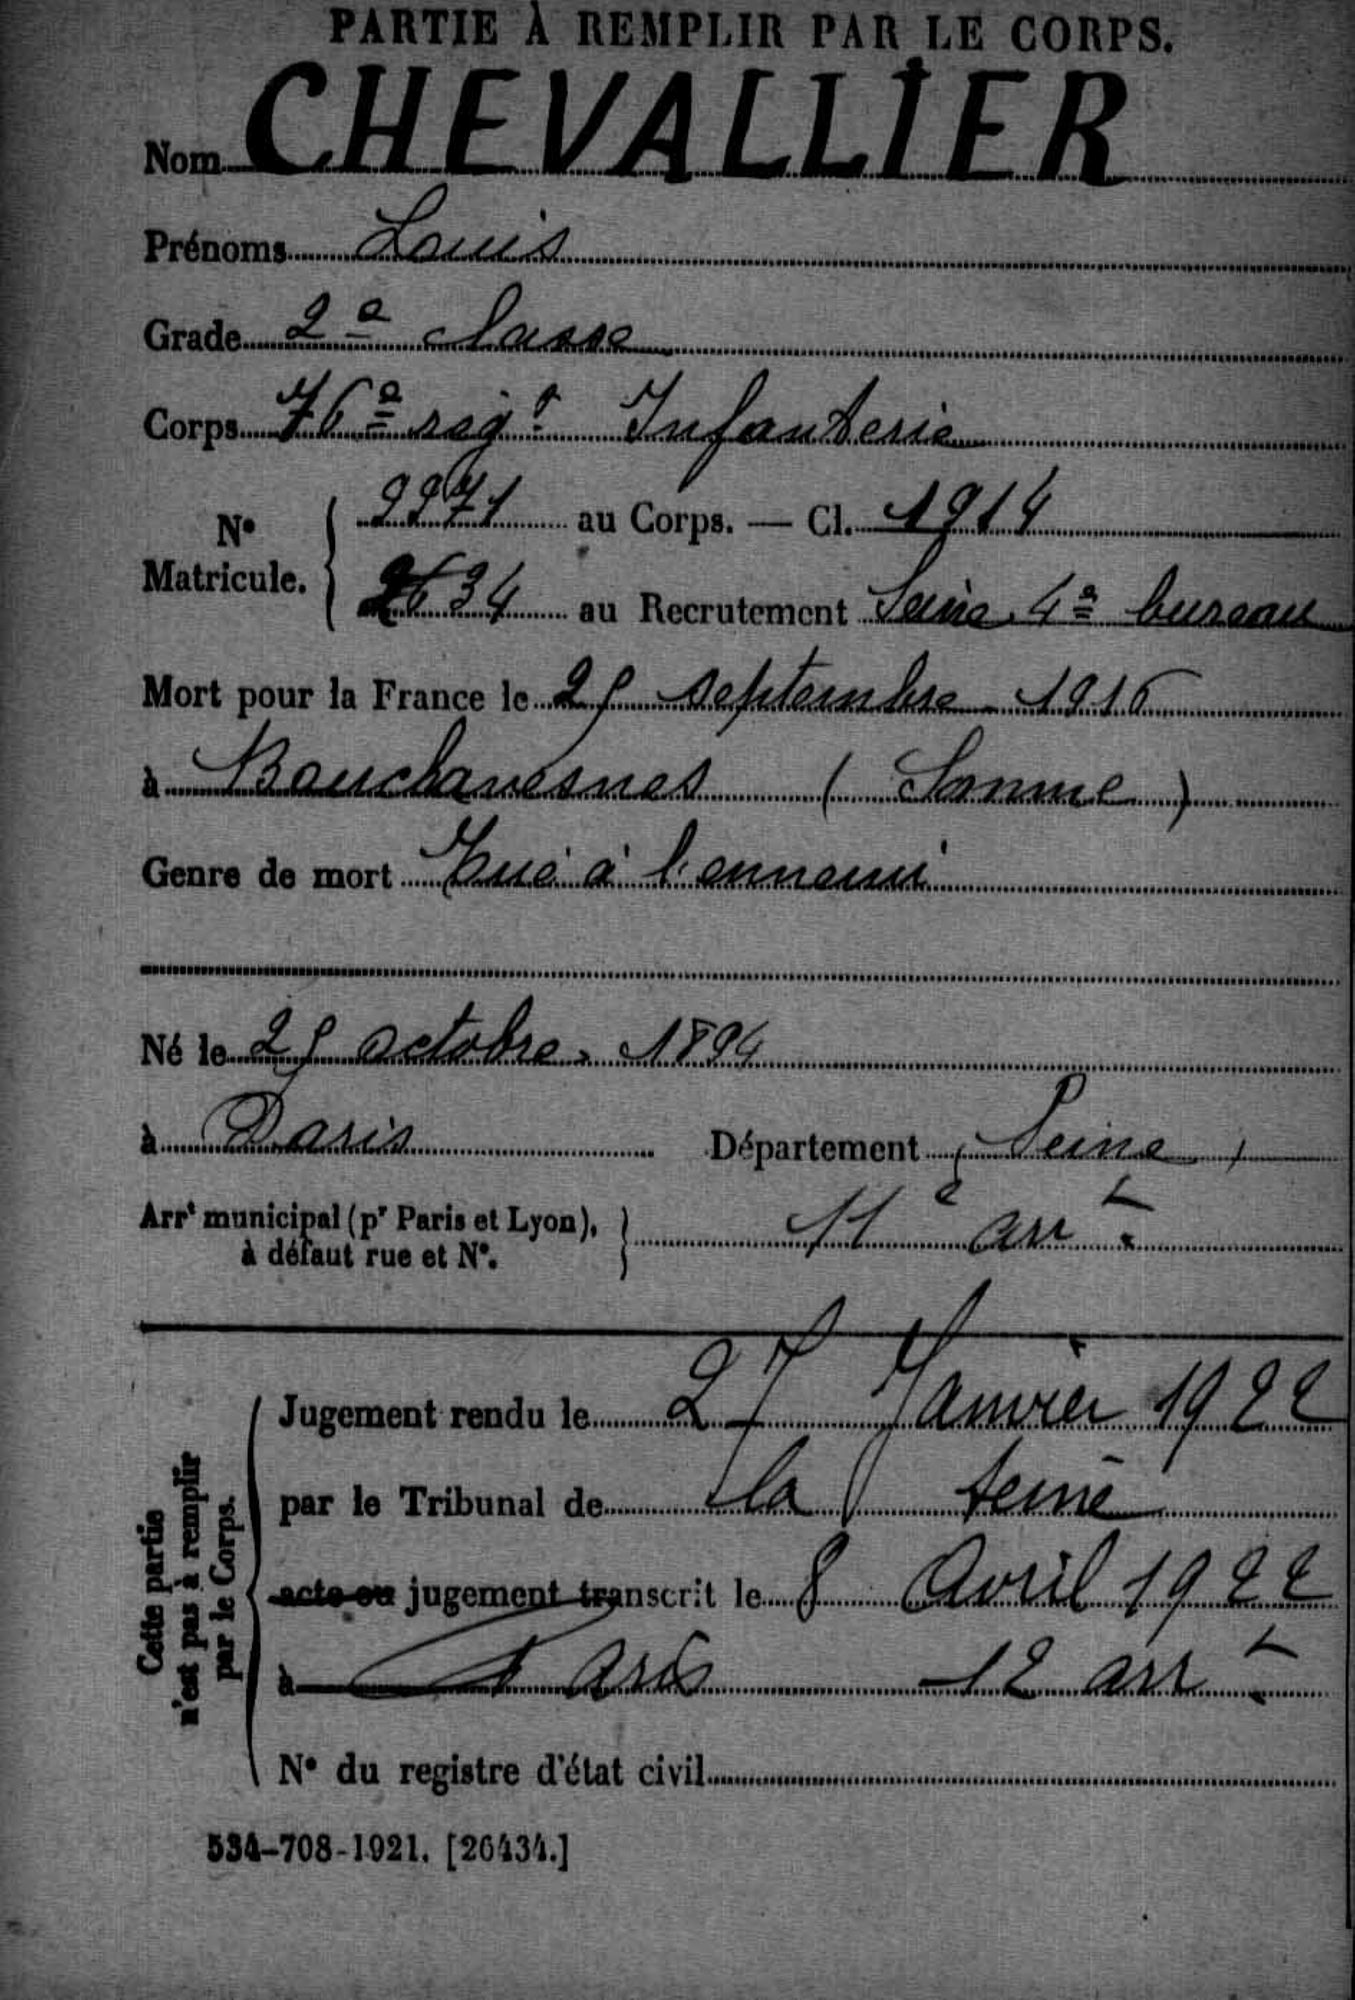 PARTIE À REMPLIR PAR LE CORPS.
Nom CHEVALLIER
Prénoms Louis
Grade 2e classe
Corps 76e régt Infanterie
N° Matricule. { 9971 au Corps. — Cl. 1914
2634 au Recrutement Seine 4e bureau
Mort pour la France le 25 septembre 1916
à Bouchavesnes (Somme)
Genre de mort Tué à l'ennemi
Né le 25 octobre 1894
à Paris Département (Seine)
Arrt municipal (pr Paris et Lyon), à défaut rue et N°. } 11e arrt
Cette partie n'est pas à remplir par le Corps.
Jugement rendu le 27 Janvier 1922
par le Tribunal de la Seine
acte ou jugement transcrit le 8 Avril 1922
à Paris 12 arrt
N° du registre d'état civil
534-708-1921. [26434.]